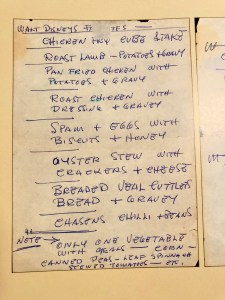 WALT DISNEYS
CHICKEN FRY CUBE STAKE
ROAST LAMB - POTATOES + GRAVY
PAN FRIED CHICKEN WITH
POTATOES + GRAVY
ROAST CHICKEN WITH
DRESSING + GRAVEY
SPAM + EGGS WITH
BISCUTS + HONEY
OYSTER STEW WITH
CRACKERS + CHEESE
BREADED VEAL CUTTLES
BREAD + GRAVEY
CHASENS CHILLI + BEANS
NOTE → ONLY ONE VEGETABLE
WITH MEALS - CORN -
CANNED PEAS - LEAF SPINNAGE
STEWED TOMATOES - ETC.